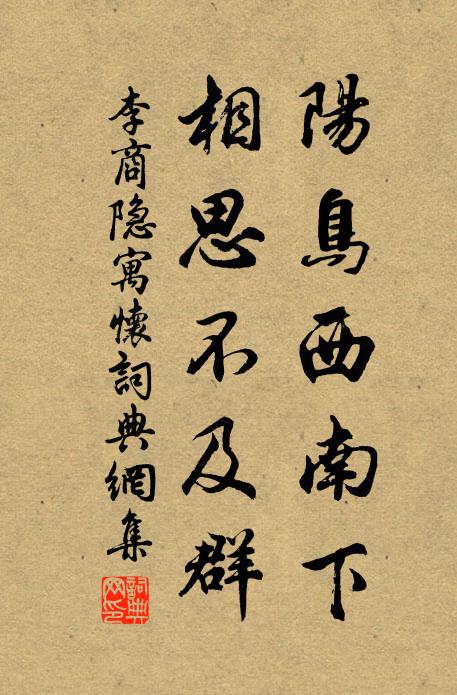 陽鳥西南下
相思不及群
李商隐寓懷詞典網集
詞典
网印